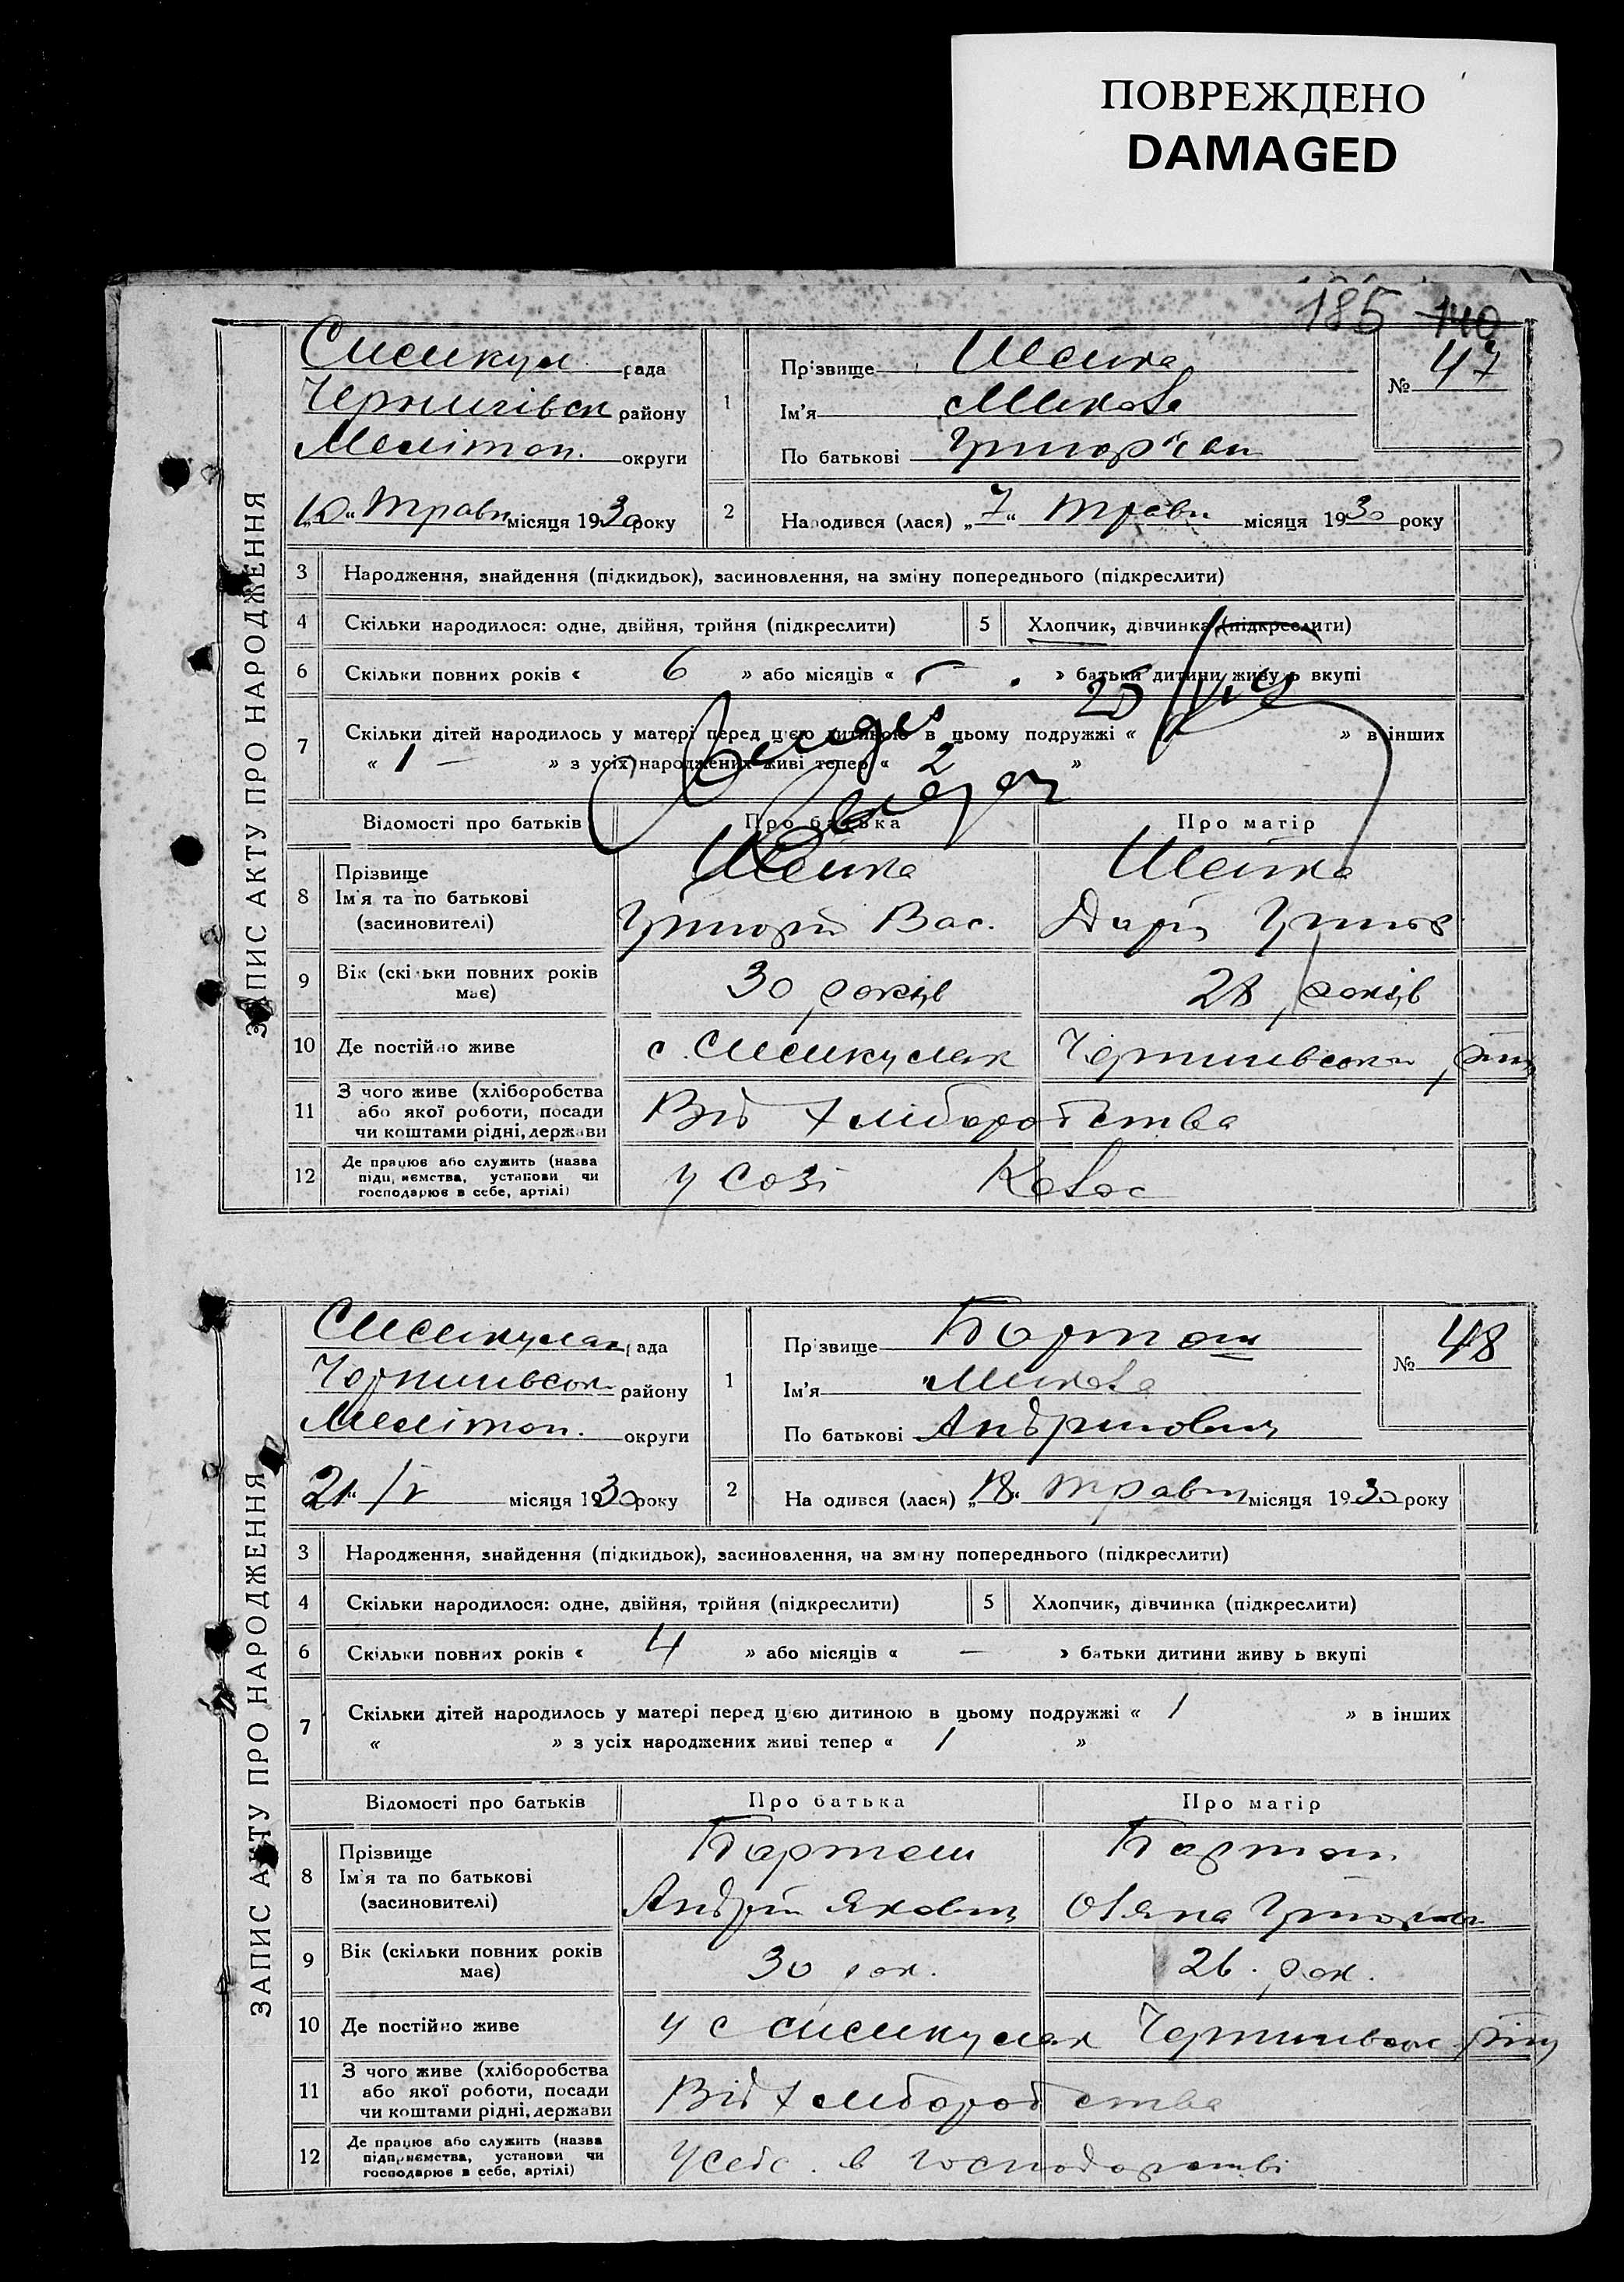 ПОВРЕЖДЕНО
DAMAGED
185 140
ЗАПИС АКТУ ПРО НАРОДЖЕННЯ
рада
району
Мелітоп. округи
„10“ Травн місяця 1930 року
1
Прізвище Шейка
Ім'я Микола
По батькові
№ 47
2 Народився (лася) „7“ Травн місяця 1930 року
3 Народження, знайдення (підкидьок), засиновлення, на зміну попереднього (підкреслити)
4 Скільки народилося: одне, двійня, трійня (підкреслити) 5 Хлопчик, дівчинка (підкреслити)
6 Скільки повних років « 6 » або місяців « — » батьки дитини живуть вкупі
7 Скільки дітей народилось у матері перед цією дитиною в цьому подружжі « » в інших
« 1 — » з усіх народжених живі тепер « 2 »
Відомості про батьків Про батька Про матір
8 Прізвище Ім'я та по батькові (засиновителі)
Шейка Шейка
Григорій Вас. Дарія
9 Вік (скільки повних років має) 30 років 28 років
10 Де постійно живе с.
11 З чого живе (хліборобства або якої роботи, посади чи коштами рідні, держави
Від хліборобства
12 Де працює або служить (назва підприємства, установи чи господарює в себе, артілі)
у созі Колос
ЗАПИС АКТУ ПРО НАРОДЖЕННЯ
рада
району
Мелітоп. округи
„21“ /V місяця 1930 року
1
Прізвище Барташ
Ім'я Микола
По батькові Андрійович
№ 48
2 Народився (лася) „18“ травня місяця 1930 року
3 Народження, знайдення (підкидьок), засиновлення, на зміну попереднього (підкреслити)
4 Скільки народилося: одне, двійня, трійня (підкреслити) 5 Хлопчик, дівчинка (підкреслити)
6 Скільки повних років « 4 » або місяців « — » батьки дитини живуть вкупі
7 Скільки дітей народилось у матері перед цією дитиною в цьому подружжі « 1 » в інших
« » з усіх народжених живі тепер « 1 »
Відомості про батьків Про батька Про матір
8 Прізвище Ім'я та по батькові (засиновителі)
Барташ Барташ
Андрій Якович Оляна
9 Вік (скільки повних років має) 30 рок. 26. рок.
10 Де постійно живе у с
11 З чого живе (хліборобства або якої роботи, посади чи коштами рідні, держави
Від хліборобства
12 Де працює або служить (назва підприємства, установи чи господарює в себе, артілі)
У себе в господарстві